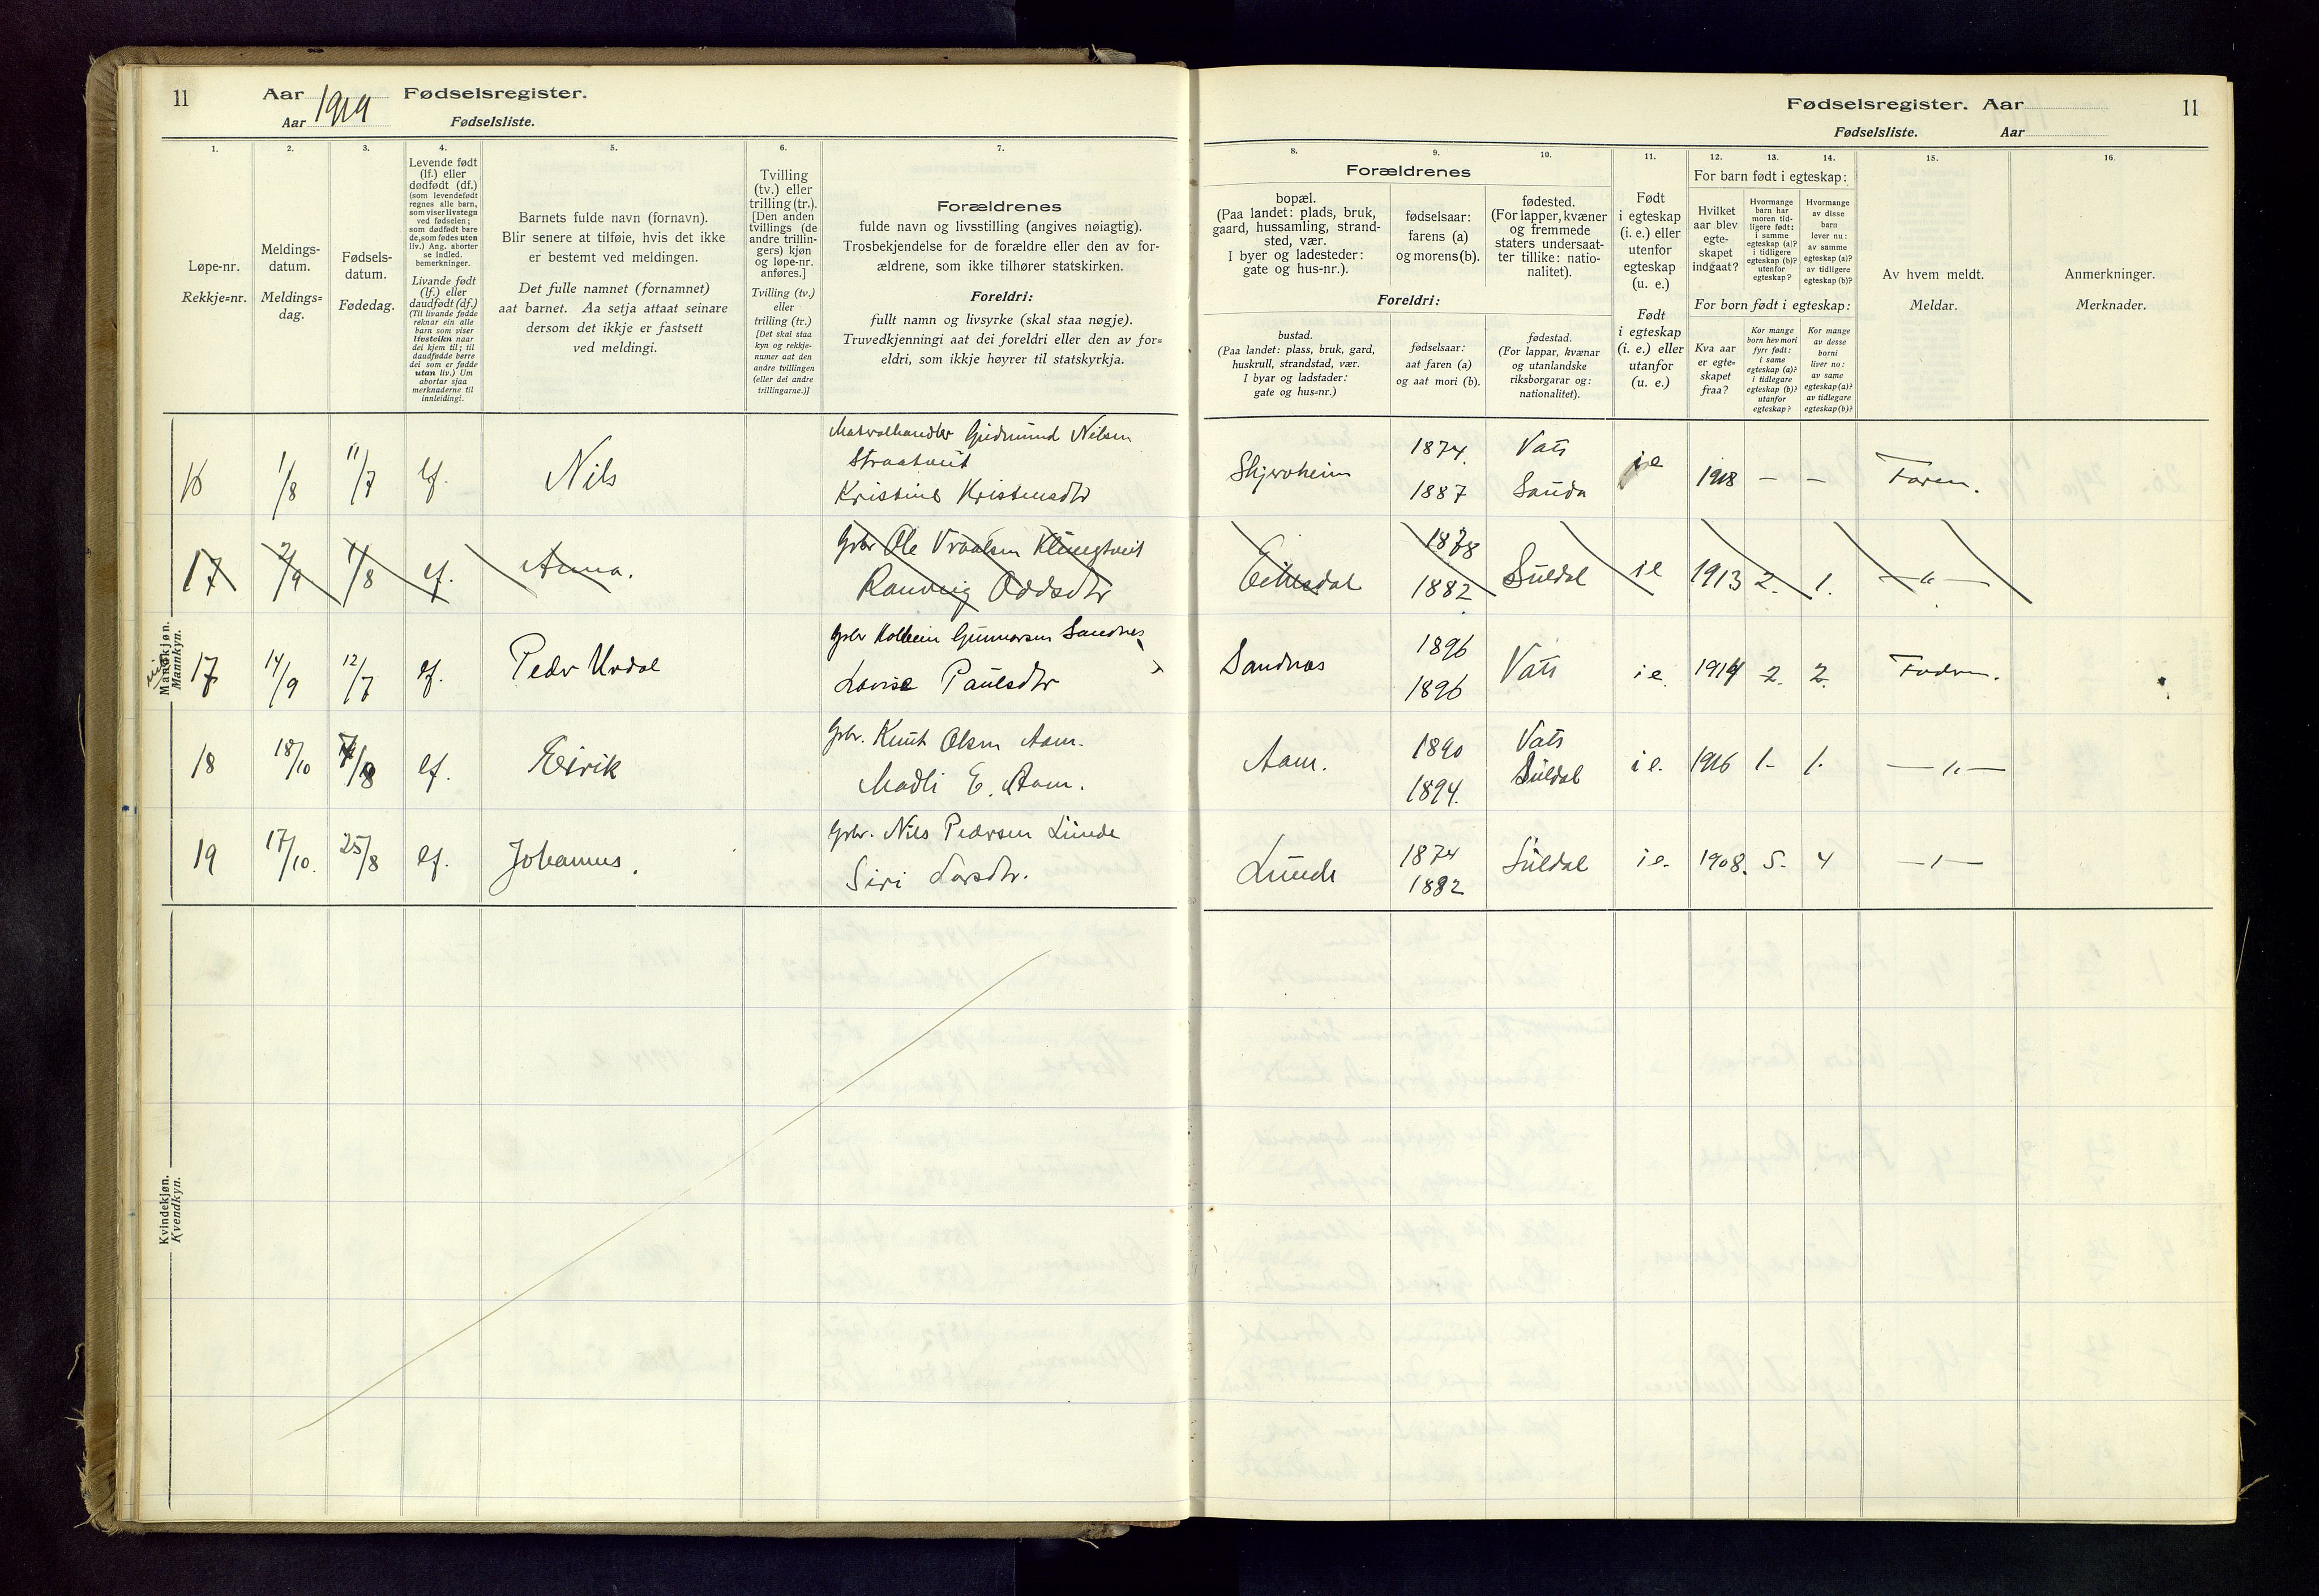 11
Aar 1919 Fødselsregister.
Aar Fødselsliste.
Fødselsregister. Aar
Fødselsliste. Aar
11
1.
Løpe-nr.
Rekkje=nr.
2.
Meldings-
datum.
Meldings=
dag.
3.
Fødsels-
datum.
Fødedag.
4.
Levende født
(lf.) eller
dødfødt (df.)
(som levendefødt
regnes alle barn,
som viser livstegn
ved fødselen;
som dødfødt bare
de, som fødes uten
liv.) Ang. aborter
se indled.
bemerkninger.
Livande født
(lf.) eller
daudfødt (df.)
(Til livande fødde
reknar ein alle
barn som viser
livsteikn naar
dei kjem til; til
daudfødde berre
dei som er fødde
utan liv.) Um
abortar sjaa
merknaderne til
innleidingi.
5.
Barnets fulde navn (fornavn).
Blir senere at tilføie, hvis det ikke
er bestemt ved meldingen.
Det fulle namnet (fornamnet)
aat barnet. Aa setja attaat seinare
dersom det ikkje er fastsett
ved meldingi.
6.
Tvilling
(tv.) eller
trilling (tr.).
[Den anden
tvillings (de
andre trillin-
gers) kjøn
og løpe-nr.
anføres.]
Tvilling (tv.)
eller
trilling (tr.)
[Det skal staa
kyn og rekkje-
numer aat den
andre tvillingen
(eller dei andre
trillingarne.)]
7.
Forældrenes
fulde navn og livsstilling (angives nøiagtig).
Trosbekjendelse for de forældre eller den av for-
ældrene, som ikke tilhører statskirken.
Foreldri:
fullt namn og livsyrke (skal staa nøgje).
Truvedkjenningi aat dei foreldri eller den av for=
eldri, som ikkje høyrer til statskyrkja.
Forældrenes
8.
bopæl.
(Paa landet: plads, bruk,
gaard, hussamling, strand-
sted, vær.
I byer og ladesteder:
gate og hus-nr.).
9.
fødselsaar:
farens (a)
og morens (b).
10.
fødested.
(For lapper, kvæner
og fremmede
staters undersaat-
ter tillike: natio-
nalitet).
Foreldri:
bustad.
(Paa landet: plass, bruk, gard,
huskrull, strandstad, vær.
I byar og ladstader:
gate og hus=nr.)
fødselsaar:
aat faren (a)
og aat mori (b).
fødestad.
(For lappar, kvænar
og utanlandske
riksborgarar og:
nationalitet).
11.
Født
i egteskap
(i. e.) eller
utenfor
egteskap
(u. e.)
Født
i egteskap
(i. e.) eller
utanfor
(u. e.)
12.
13.
14.
For barn født i egteskap:
Hvilket
aar blev
egte-
skapet
indgaat?
Hvormange
barn har
moren tid-
ligere født:
i samme
egteskap (a)?
i tidligere
egteskap (b)?
utenfor
egteskap?
Hvormange
av disse
barn
lever nu:
av samme
egteskap (a)?
av tidligere
egteskap (b)?
For born født i egteskap:
Kva aar
er egte-
skapet
fraa?
Kor mange
born hev mori
fyrr født:
i same
egteskap (a)?
i tidlegare
egteskap (b)?
utanfor
egteskap?
Kor mange
av desse
borni
liver no:
av same
egteskap (a)?
av tidlegare
egteskap (b)?
15.
Av hvem meldt.
Meldar.
16.
Anmerkninger.
Merknader.
Mandkjøn.
Mannkyn.
16 1/8 11/7 lf. Nils
Gudmund Nilsen
Straatveit
Kristine Kristensdtr
Skjeroheim 1874. 1887 Vats Sauda ie 1918 – – Faren.
17 2/9 11/8 lf. Anna.
Gbr Ole
Ranveig Oddsdtr
1878 1882 Suldal ie 1913 2. 1. —"—
17 14/9 12/7 lf. Peder Urdal
Gbr Kolbein Gunnarsen Sandnes
Lovise Paulsdtr
Sandnes 1896 1896 Vats ie. 1914 2. 2. Fadren.
18 18/10 lf. Eirik
Gbr. Knut Olsen Aam.
Madli E. Aam.
Aam. 1890 1894. Vats Suldal ie. 1916 1. 1. —"—
19 17/10. 25/8 lf. Johannes.
Gbr. Nils Pedersen Lunde
Siri Larsdtr.
Lunde 1874 1882 Suldal ie. 1908. 5. 4 —"—
Kvindekjøn.
Kvendkyn.